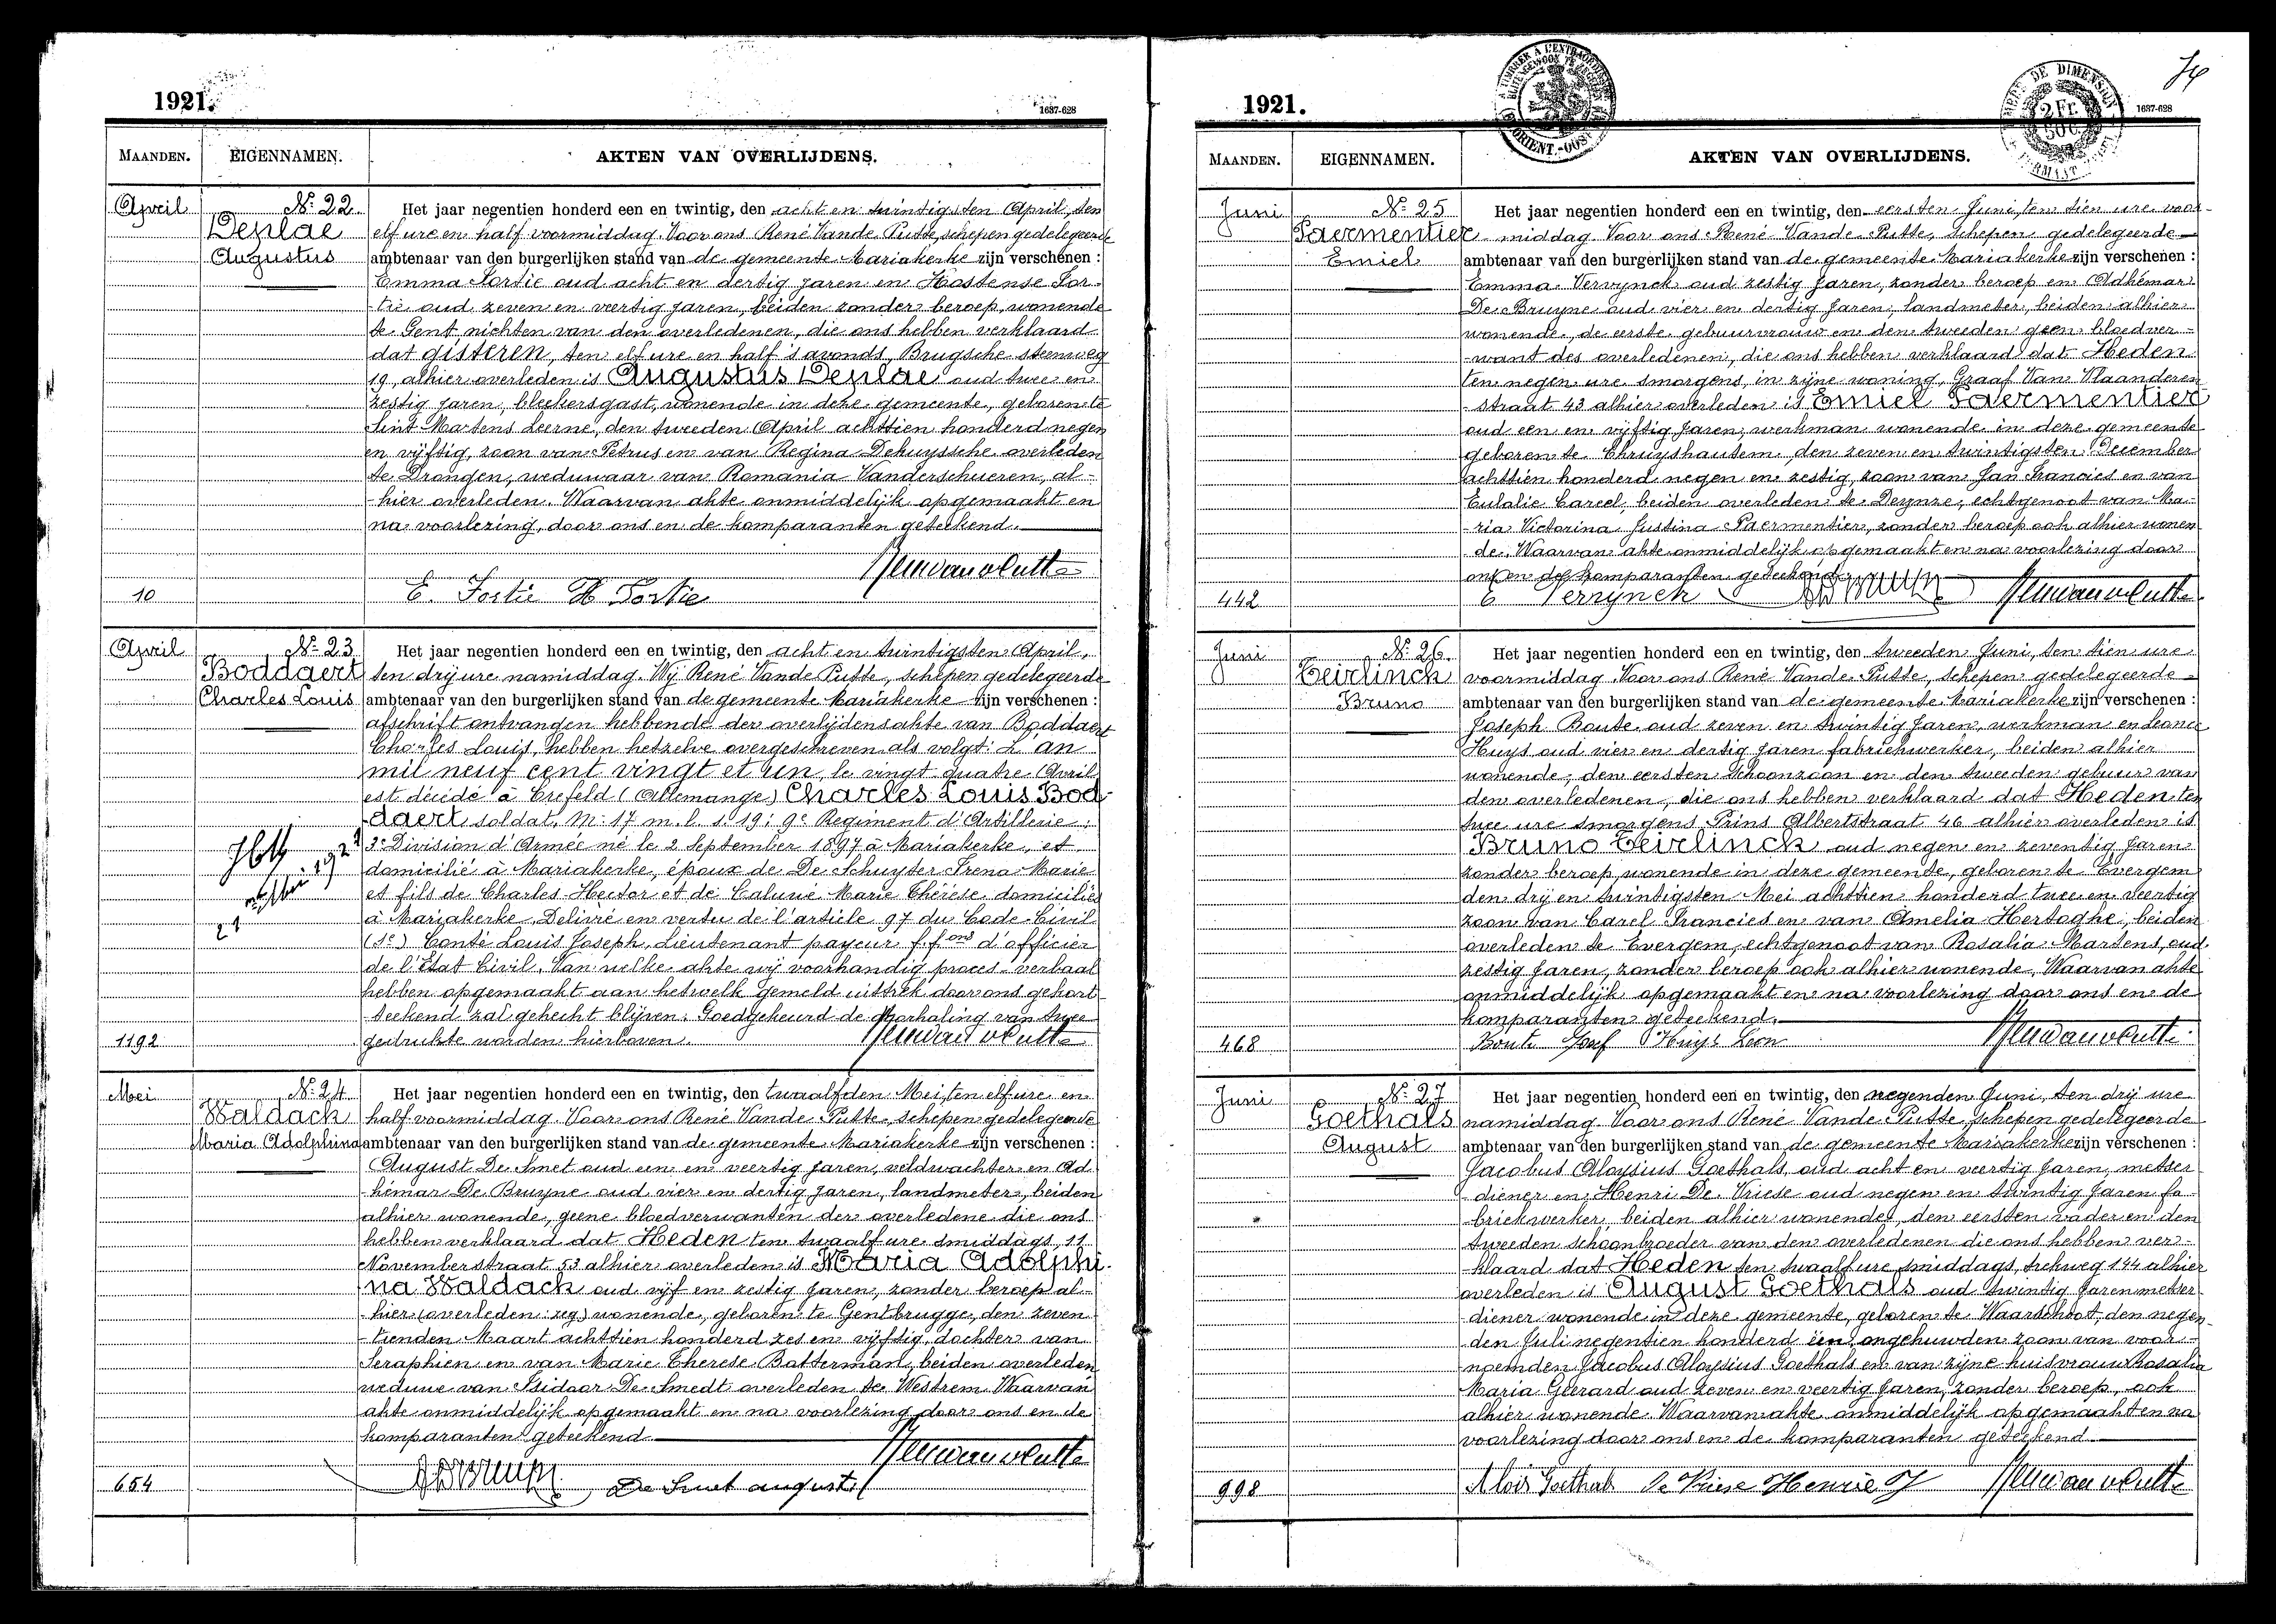 1921.
1637-628
MAANDEN. EIGENNAMEN. AKTEN VAN OVERLIJDENS.
April
Nº 22
Deplae
Augustus
10
Het jaar negentien honderd een en twintig, den acht en twintigsten April, ten
elf ure en half voormiddag. Voor ons René Vande Putte, schepen gedelegeerde
ambtenaar van den burgerlijken stand van de gemeente Mariakerke zijn verschenen :
Emma Sortie oud acht en dertig jaren en Hostense Sor-
-tie oud zeven en veertig jaren, beiden zonder beroep, wonende
te Gent nichten van den overledenen, die ons hebben verklaard
dat gisteren, ten elf ure en half 's avonds, Brugsche steenweg
19, alhier overleden is Augustus Deplae oud twee en
zestig jaren, bleekersgast, wonende in deze gemeente, geboren te
Sint Martens Leerne, den tweeden April achttien honderd negen
en vijftig, zoon van Petrus en van Regina Dehuyssche overleden
te Drongen, weduwaar van Romania Vanderschueren, al-
-hier overleden. Waarvan akte onmiddelijk opgemaakt en
na voorlezing, door ons en de komparanten geteekend.
E. Sortie H Sortie
April
Nº 23
Boddaert
Charles Louis
1192
Het jaar negentien honderd een en twintig, den acht en twintigsten April,
ten drij ure namiddag. Wij René Vande Putte, schepen gedelegeerde
ambtenaar van den burgerlijken stand van de gemeente Mariakerke zijn verschenen :
afschrift ontvangen hebbende der overlijdensakte van Boddaert
Charles Louis, hebben hetzelve overgeschreven als volgt: L'an
mil neuf cent vingt et un, le vingt quatre Avril
est décidé à Crefeld (Allemange) Charles Louis Bod-
daert soldat, Mº 17 m. l. s. 19: 9e Regiment d'Artillerie:
3e Division d'Armée né le 2 September 1897 à Mariakerke, et
domicilié à Mariakerke, époux de De Schuyter Irena Marie
et fils de Charles-Hector et de Caluwé Marie Thérèse domiciliés
à Mariakerke. Delivré en vertu de l'article 97 du Code Civil
(Se) Conté Louis Joseph, Lieutenant payeur f.f.ons d'officier
de l'Etat Civil. Van welke akte wij voorhandig proces-verbaal
hebben opgemaakt aan hetwelk gemeld uittrek door ons gehort-
teekend zal gehecht blijven. Goedgekeurd de doorhaling van twee
gedrukte worden hierboven.
Mei
Nº 24
Waldack
Maria Adolphina
654
Het jaar negentien honderd een en twintig, den twaalfden Mei, ten elf ure en
half voormiddag. Voor ons René Vande Putte, schepen gedelegeerde
ambtenaar van den burgerlijken stand van de gemeente Mariakerke zijn verschenen :
August De Smet oud een en veertig jaren, veldwachter en Ad-
-hémar De Bruyne oud vier en dertig jaren, landmeter, beiden
alhier wonende, geene bloedverwanten der overledene die ons
hebben verklaard dat Heden ten twaalf ure smiddags, 11
Novemberstraat 53 alhier overleden is Maria Adolphi-
na Waldack oud vijf en zestig jaren, zonder beroep al-
-hier (overleden: zeg) wonende, geboren te Gentbrugge, den zeven-
-tienden Maart achttien honderd zes en vijftig, dochter van
Seraphien en van Marie Therese Batterman, beiden overleden
weduwe van Isidoor De Smedt overleden te Westrem. Waarvan
akte onmiddelijk opgemaakt en na voorlezing door ons en de
komparanten geteekend
De Smet august
1921.
1637-628
2 Fr.
MAANDEN. EIGENNAMEN. AKTEN VAN OVERLIJDENS.
Juni
Nº 25
Paermentier
Emiel
442
Het jaar negentien honderd een en twintig, den eersten Juni, ten tien ure voor-
-middag. Voor ons René Vande Putte, schepen gedelegeerde
ambtenaar van den burgerlijken stand van de gemeente Mariakerke zijn verschenen :
Emma Vervynck oud zestig jaren, zonder beroep en Adhémar
De Bruyne oud vier en dertig jaren, landmeter, beiden alhier
wonende, de eerste gebuurvrouw en den tweeden geen bloedver-
-want des overledenen, die ons hebben verklaard dat Heden
ten negen ure smorgens, in zijne woning, Graaf Van Vlaanderen-
-straat 43 alhier overleden is Emiel Paermentier
oud een en vijftig jaren, werkman wonende in deze gemeente
geboren te Chruyshautem, den zeven en twintigsten December
achttien honderd negen en zestig, zoon van Jan Francies en van
Eulalie Careel, beiden overleden te Deynze, echtgenoot van Ma-
-ria Victorina Justina Paermentier, zonder beroep ook alhier wonen-
de. Waarvan akte onmiddelijk opgemaakt en na voorlezing door
ons en de komparanten geteekend
E Vervynck
Juni
Nº 26
Teirlinck
Bruno
468
Het jaar negentien honderd een en twintig, den tweeden Juni, ten tien ure
voormiddag. Voor ons René Vande Putte, schepen gedelegeerde
ambtenaar van den burgerlijken stand van de gemeente Mariakerke zijn verschenen :
Joseph Boute oud zeven en twintig jaren, werkman en Leonce
Huys oud vier en dertig jaren fabriekwerker, beiden alhier
wonende, den eersten schoonzoon en den tweeden gebuur van
den overledenen, die ons hebben verklaard dat Heden ten
twee ure smorgens Prins Albertstraat 46 alhier overleden is
Bruno Teirlinck oud negen en zeventig jaren
zonder beroep, wonende in deze gemeente, geboren te Evergem
den drij en twintigsten Mei achttien honderd twee en veertig
zoon van Carel Francies en van Amelia Hertoghe, beiden
overleden te Evergem, echtgenoot van Rosalia Martens, oud
zestig jaren, zonder beroep ook alhier wonende. Waarvan akte
onmiddelijk opgemaakt en na voorlezing door ons en de
komparanten geteekend.
Boute Josef Huys Leon
Juni
Nº 27
Goethals
August
998
Het jaar negentien honderd een en twintig, den negenden Juni, ten drij ure
namiddag. Voor ons René Vande Putte, schepen gedelegeerde
ambtenaar van den burgerlijken stand van de gemeente Mariakerke zijn verschenen :
Jacobus Aloysius Goethals oud acht en veertig jaren, metser-
-diener en Henri De Vriese oud negen en twintig jaren fa-
-briekwerker, beiden alhier wonende, den eersten vader en den
tweeden schoonbroeder van den overledenen die ons hebben ver-
-klaard dat Heden ten twaalf ure smiddags, trekweg 144 alhier
overleden is August Goethals oud twintig jaren metser-
-diener wonende in deze gemeente, geboren te Waarschoot, den negen-
-den Juli negentien honderd één, ongehuwden zoon van voor-
noemden Jacobus Aloysius Goethals en van zijne huisvrouw Rosalia
Maria Geerard oud zeven en veertig jaren, zonder beroep, ook
alhier wonende. Waarvan akte onmiddelijk opgemaakt en na
voorlezing door ons en de komparanten geteekend
Alois Goethals De Vriese Henrie